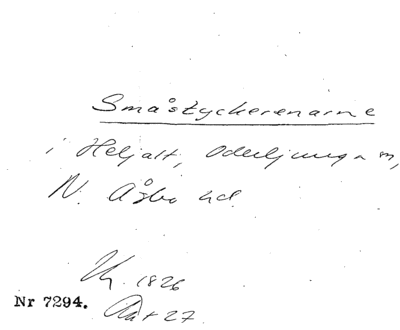 Småstyckerenarne
i Heljalt, Oderljunga sn,
N. Åsbo hd.
1826
Nr 7294.
Akt 27